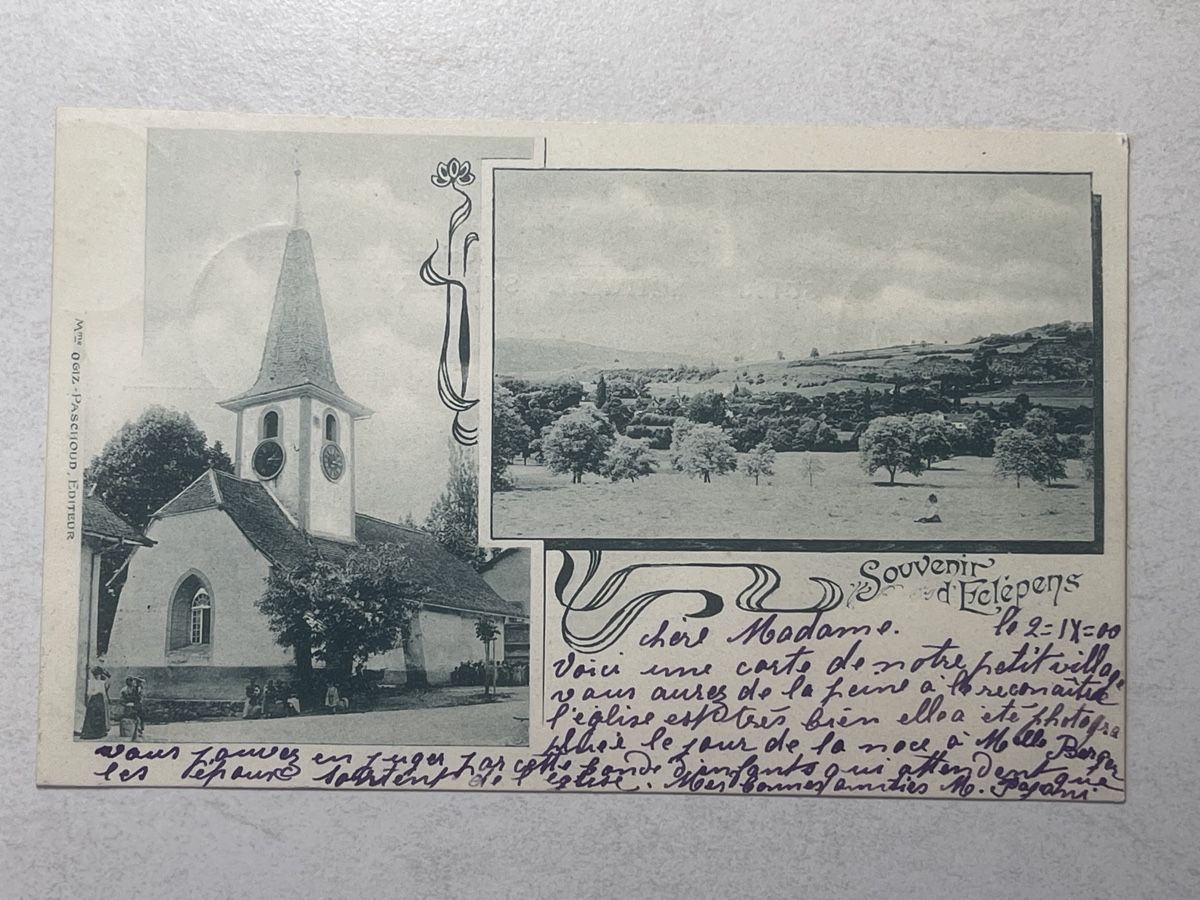 Mme OGIZ-PASCHOUD, EDITEUR
Souvenir
d'Eclépens
chère Madame. le 2=IX=00
Voici une carte de notre petit village
vous aurez de la peine à le reconaître
l'église est très bien elle a été photogra
phieé le jour de la noce à Melle Berger
vous pouvez en juger par cette bande d'enfants qui attendent que
les époux sortent de l'église. Mes bonnes amitiés M.